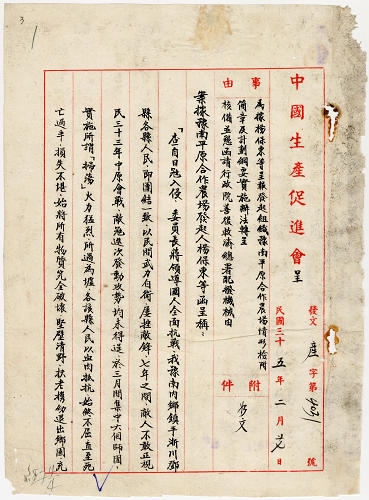 中國生產促進會呈
發文 產字第4031號
民國三十五年二月 日
事由
為據楊保東等呈報發起組織豫南平原合作農場情形檢附
簡章及計劃綱要實施辦法轉呈
核備並懇函請行政院善後救濟總署配發機械由
附件
如文
案據豫南平原合作農場發起人楊保東等函呈稱：
「查自日寇入侵，委員長蔣領導國人全面抗戰，我豫南內鄉鎮平淅川鄧
縣各縣人民，即團結一致，以民間武力自衛，屢挫敵鋒，七年之間，敵人不敢正視
民三十三年中原會戰，敵寇迭次發動攻勢均未得逞，於三月間集中六個師團，
實施所謂「掃蕩」火力猛烈，所過為墟，各該縣人民以血肉抵抗，始終不屈，直至死
亡過半，損失不堪，始將所有物資完全破壞，堅壁清野，扶老攜幼退出鄉園，充
3
1